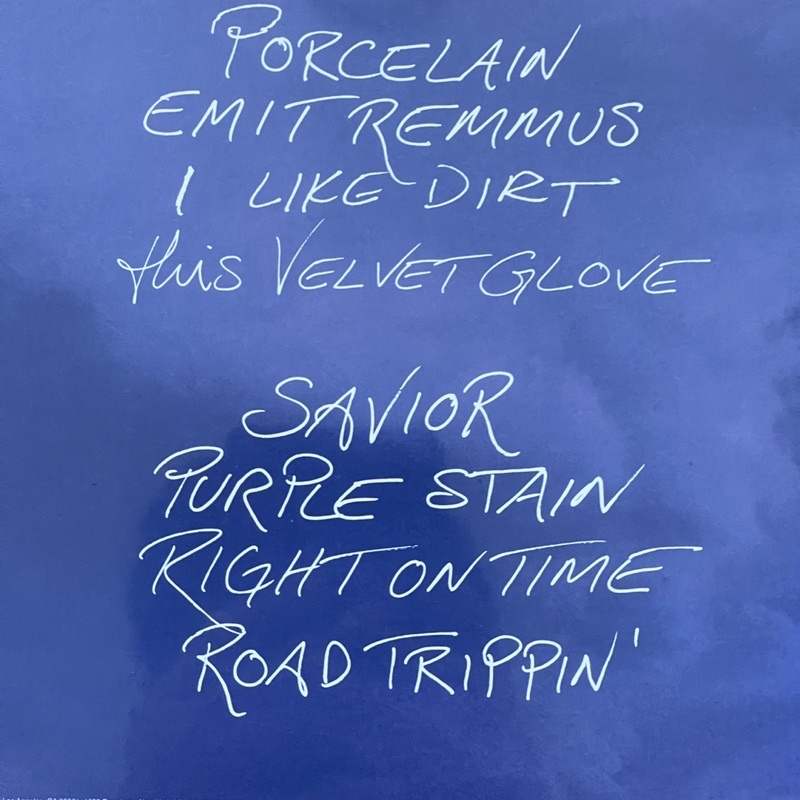 PORCELAIN
EMIT REMMUS
I LIKE DIRT
this VELVET GLOVE
SAVIOR
PURPLE STAIN
RIGHT ON TIME
ROAD TRIPPIN'